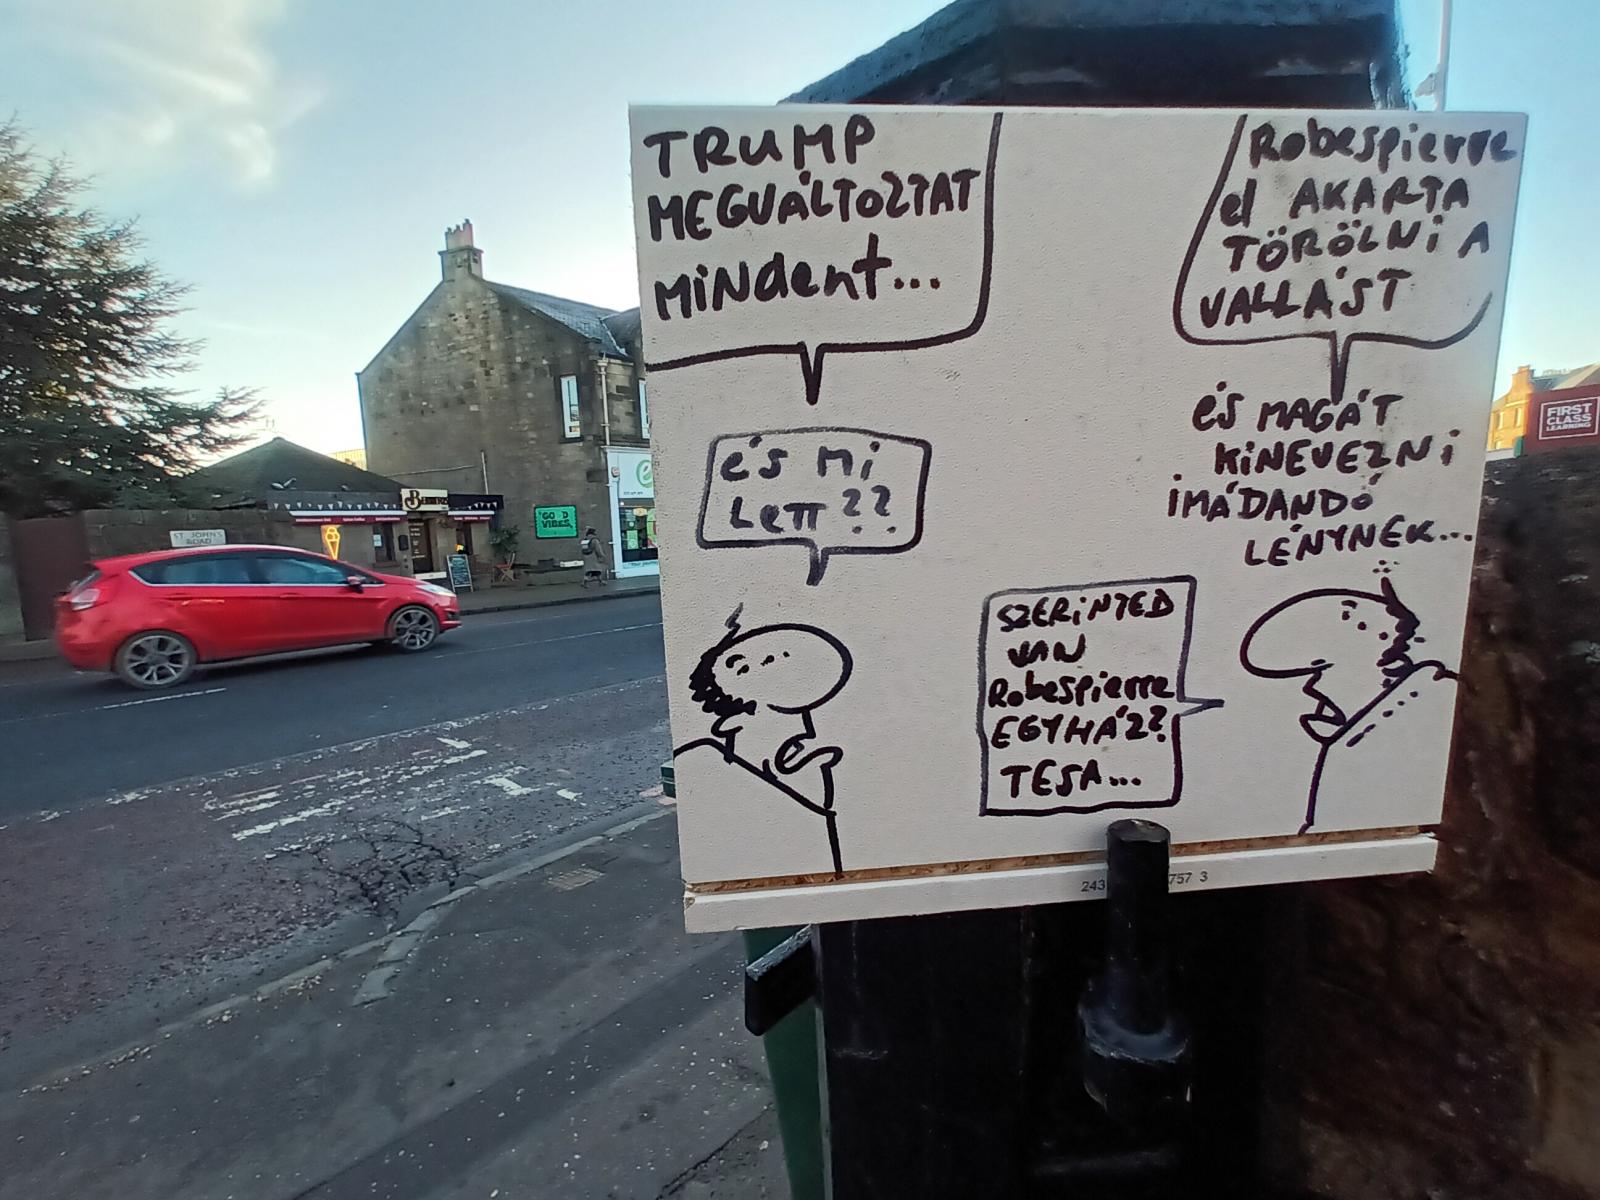 TRUMP
MEGVÁLTOZTAT
MINDENT...
éS Mi
LETT??
Robespierre
el AKARTA
TÖRÖLNi A
VALLÁST
éS MAGÁT
KiNEVEZNi
iMÁDANDÓ
LÉNYNEK...
SZERiNTED
VAN
Robespierre
EGYHÁZ?
TESA...
243
757 3
ST. JOHN'S
ROAD
GOOD
VIBES
FIRST
CLASS
LEARNING